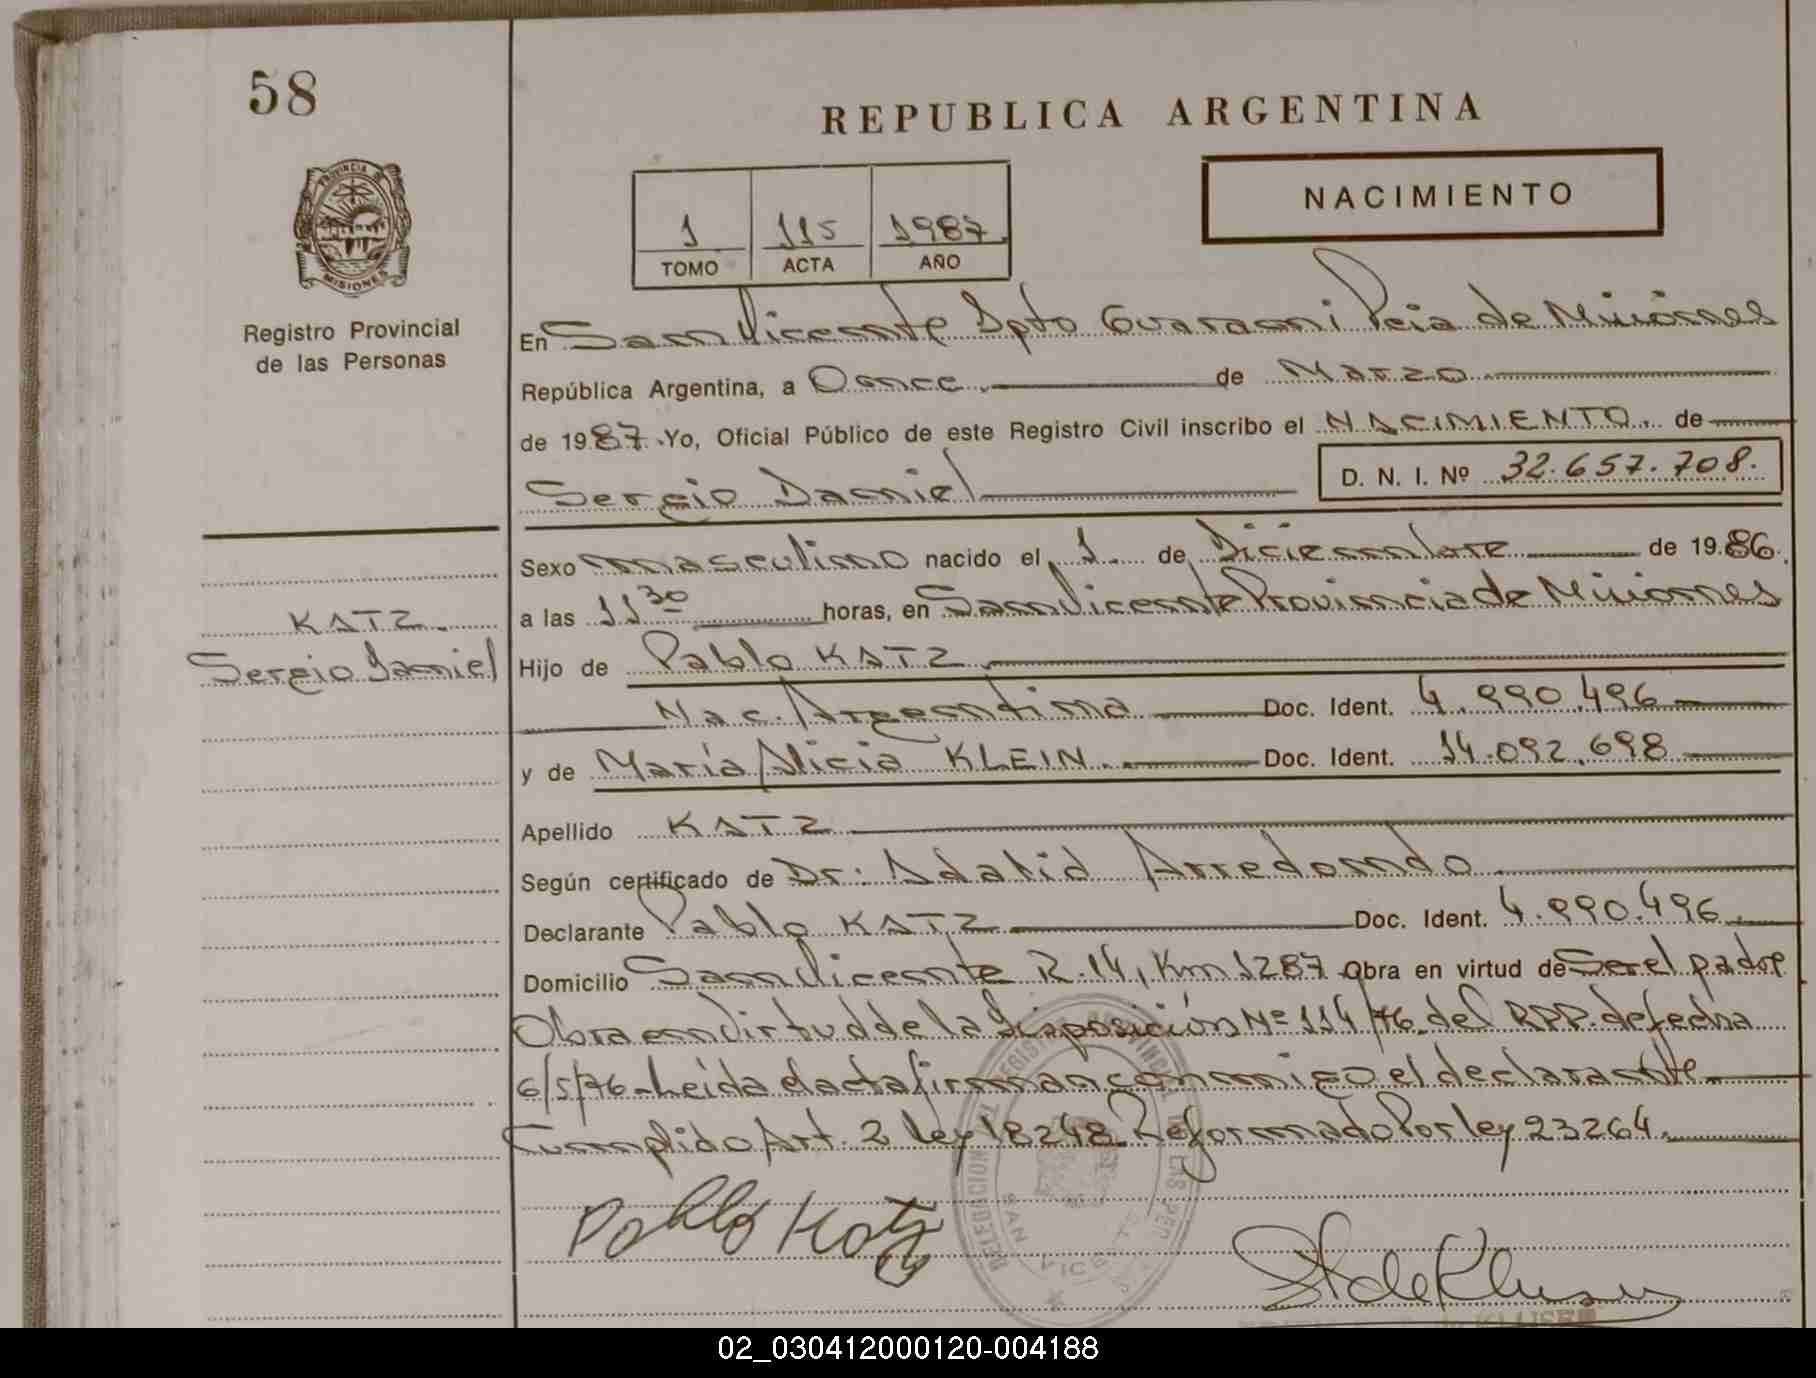 58
REPUBLICA ARGENTINA
PROVINCIA DE
MISIONES
Registro Provincial
de las Personas
1 115 1987
TOMO ACTA AÑO
NACIMIENTO
En San Vicente Dpto Guarani Pcia de Misiones
República Argentina, a Once de Marzo
de 1987. Yo, Oficial Público de este Registro Civil inscribo el NACIMIENTO. de
Sergio Daniel D. N. I. Nº 32.657.708.
Sexo masculino nacido el 1 de Diciembre de 1986.
a las 11 30 horas, en San Vicente Provincia de Misiones
KATZ
Sergio Daniel
Hijo de Pablo KATZ
Nac. Argentina Doc. Ident. 4.990.496
y de María Alicia KLEIN. Doc. Ident. 14.092.698
Apellido KATZ
Según certificado de Dr: Adalid Arredondo
Declarante Pablo KATZ Doc. Ident. 4.990.496
Domicilio San Vicente R.14, Km 1287 Obra en virtud de Ser el padre
Obra en virtud de la Disposición Nº 114/76 del RPP. de fecha
6/5/76 - Leída el acta firman conmigo el declarante
Cumplido Art. 2 Ley 18248 Reformado Por ley 23264.
Pablo Katz
DELEGACION REGISTRO PROVINCIAL DE LAS PER
SAN VICENTE
KLUSEN
02_030412000120-004188